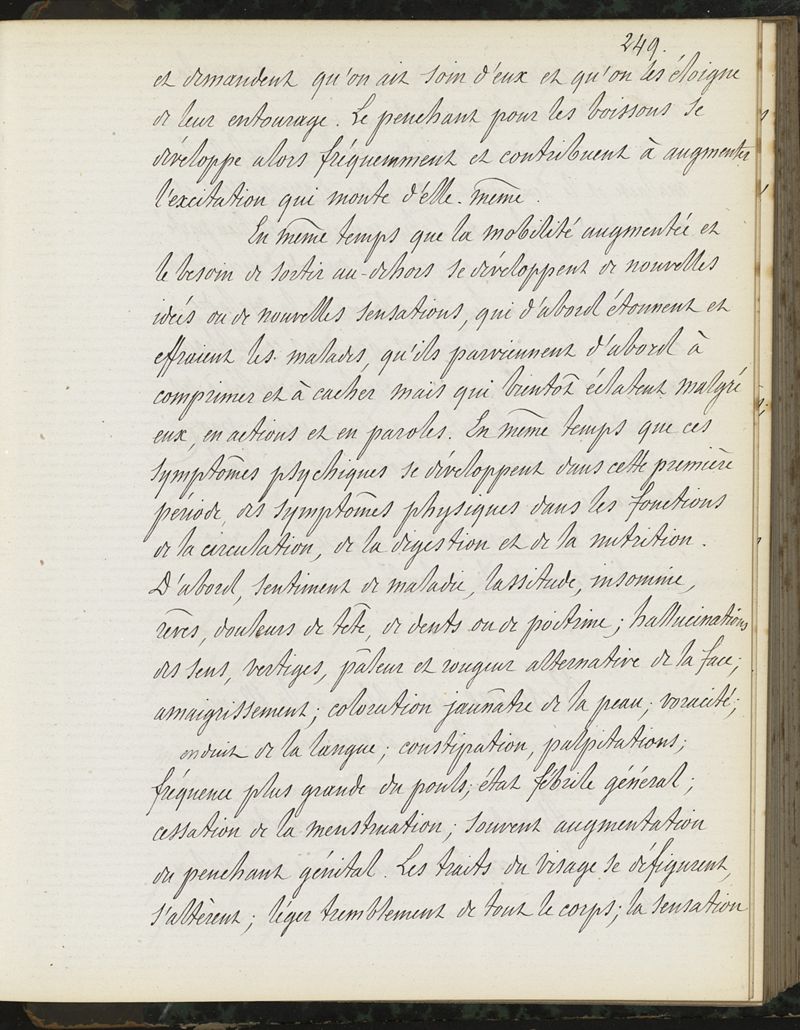 249.
et demandent qu'on ait soin d'eux et qu'on les éloigne
de leur entourage. Le penchant pour les boissons se
développe alors fréquemment et contribuent à augmenter
l'excitation qui monte d'elle-même.
En même temps que la mobilité augmentée et
le besoin de sortir au-dehors se développent de nouvelles
idées ou de nouvelles sensations, qui d'abord étonnent et
effraient les malades, qu'ils parviennent d'abord à
comprimer et à cacher mais qui bientôt éclatent malgré
eux, en actions et en paroles. En même temps que ces
symptômes psychiques se développent dans cette première
période, des symptômes physiques dans les fonctions
de la circulation, de la digestion et de la nutrition.
D'abord, sentiment de maladie, lassitude, insomnie,
rêves, douleurs de tête, de dents ou de poitrine; hallucinations
des sens, vertiges, pâleur et rougeur alternative de la face;
amaigrissement; coloration jaunâtre de la peau; voracité;
enduit de la langue; constipation, palpitations;
fréquence plus grande du pouls; état fébrile général;
cessation de la menstruation; souvent augmentation
du penchant génital. Les traits du visage se défigurent,
s'altèrent; léger tremblement de tout le corps; la sensation